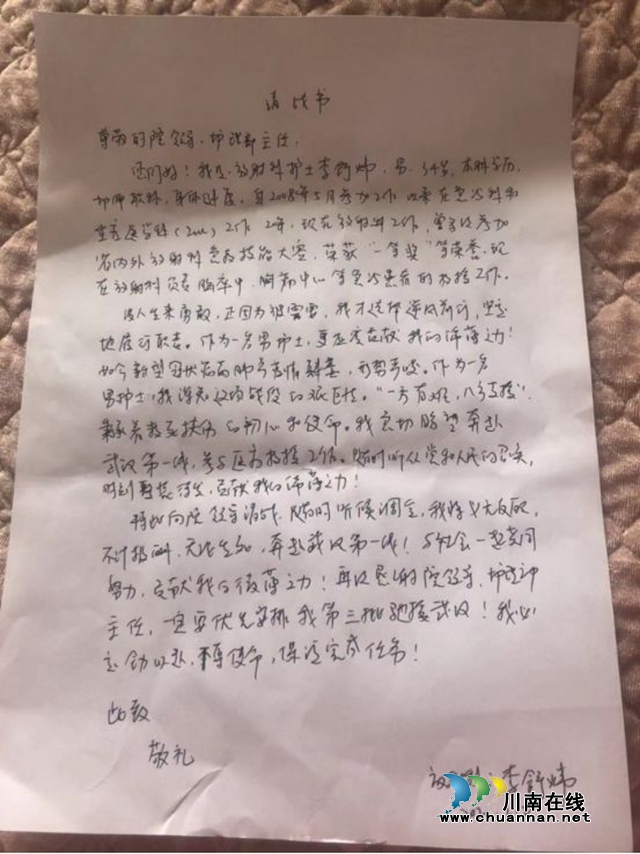 请战书
尊敬的院领导、护理部主任：
您们好！我是放射科护士李舒炜，男，34岁，本科学历，
护师职称，身体健康。自2008年5月参加工作以来在急诊科和
重症医学科（ICU）工作 年，现在放射科工作，曾多次参加
省内外放射科 技能大赛，荣获“一等奖”等荣誉，现
在放射科负责脑卒中、胸痛中心等急诊患者的 工作。
没人生来勇敢，正因为被需要，我才选择逆风前行，坚定
地履行职责。作为一名男护士，更应该贡献我的绵薄之力！
如今新型冠状病毒肺炎疫情肆虐，形势 。作为一名
男护士，我深知这场战役的艰巨性。“一方有难，八方支援”，
秉承着救死扶伤的初心和使命。我急切盼望奔赴
武汉第一线，参与医疗救援工作。随时听从党和人民的召唤，
时刻再装待发，贡献我的绵薄之力！
特此向院领导请战，随时听候调遣，我将义无反顾，
不计报酬，无论生死，奔赴武汉第一线！与社会一起共同
努力，贡献我的微薄之力！再次恳请院领导、护理部
主任，一定要优先安排我第三批驰援武汉！我必
定全力以赴，不辱使命，保证完成任务！
此致
敬礼
李舒炜
川南在线
www.chuannan.net